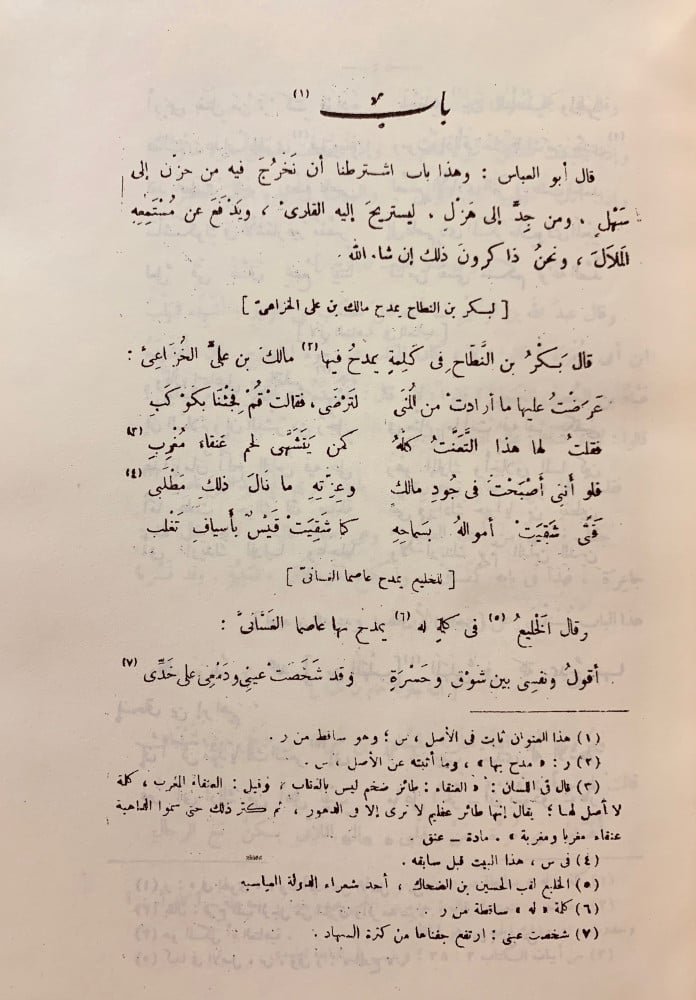 باب (١)
قال أبو العباس : وهذا باب اشترطنا أن نَخْرُجَ فيه من حزْن إلى
سَهْلٍ ، ومن جِدٍّ إلى هَزْلٍ ، ليستريحَ إليه القارئ ، ويَدْفَعَ عن مُسْتَمِعِهِ
المَلَالَ ، ونحنُ ذاكرونَ ذلك إن شاء الله .
[ لبكر بن النطاح يمدح مالك بن على الخزاعىّ ]
قال بَكْرُ بن النَّطاح فى كَلِمةٍ يمدحُ فيها (٢) مالكَ بن علىٍّ الخُزَاعِىَّ :
عَرَضْتُ عليها ما أرادتْ من المُنَى لتَرْضَى ، فقالتْ قُمْ فِجْئنَا بكَوْكَبِ
فقلتُ لها هذا التَّعَنُّتُ كلُّهُ كمن يَتَشَهَّى لحم عَنقاءَ مُغْرِبِ (٣)
فلو أننى أَصْبَحْتُ فى جُودِ مالكٍ وعِزَّتِهِ ما نَالَ ذلكِ مَطْلَبى (٤)
فَتًى شَقِيَتْ أموالهُ بسَماحِهِ كما شَقِيَتْ قَيْسٌ بأَسيافِ تَغْلب
[ للخليع يمدح عاصما الغسانىّ ]
وقال الخَلِيعُ (٥) فى كلمةٍ له (٦) يمدح بها عاصما الغَسَّانىَّ :
أقولُ ونفسِى بين شوْق وحَسْرَةٍ وقد شَخَصَتْ عينى ودَمْعِى على خَدِّى (٧)
(١) هذا العنوان ثابت فى الأصل ، س ؛ وهو ساقط من ر .
(٢) ر : « مدح بها » ، وما أثبته عن الأصل ، س .
(٣) قال فى اللسان : « العنقاء : طائر ضخم ليس بالعقاب ، وقيل : العنقاء المغرب ، كلمة
لا أصل لها ؛ يقال إنها طائر عظيم لا ترى إلا فى الدهور ، ثم كثر ذلك حتى سموا الداهية
عنقاء مغربا ومغربة » . مادة – عنق .
(٤) فى س ، هذا البيت قبل سابقه .
(٥) الخليع لقب الحسين بن الضحاك ، أحد شعراء الدولة العباسية
(٦) كلمة « له » ساقطة من ر .
(٧) شخصت عينى : ارتفع جفناها من كثرة السهاد .